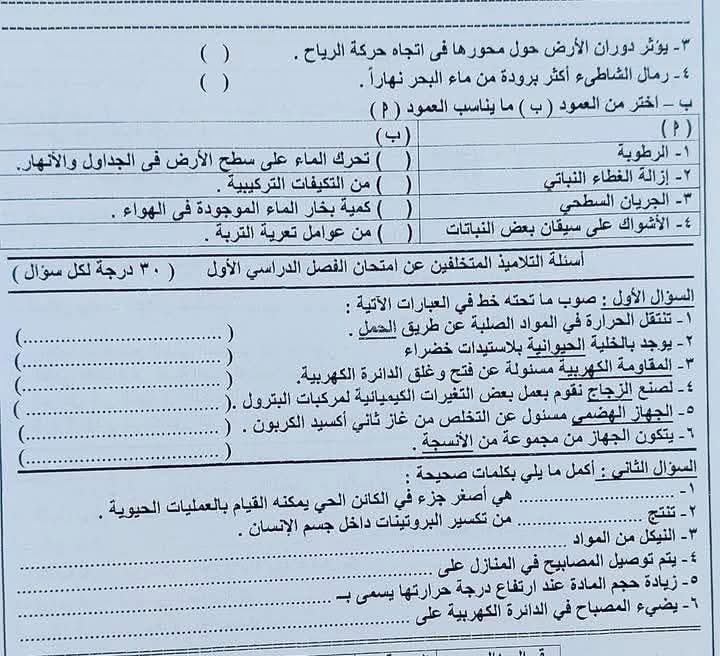 ٣- يؤثر دوران الأرض حول محورها فى اتجاه حركة الرياح . ( )
٤- رمال الشاطىء أكثر برودة من ماء البحر نهاراً . ( )
ب – اختر من العمود ( ب ) ما يناسب العمود ( ٢ )
( ٢ ) ( ب )
١- الرطوبة ( ) تحرك الماء على سطح الأرض فى الجداول والأنهار.
٢- إزالة الغطاء النباتي ( ) من التكيفات التركيبية .
٣- الجريان السطحي ( ) كمية بخار الماء الموجودة فى الهواء .
٤- الأشواك على سيقان بعض النباتات ( ) من عوامل تعرية التربة .
أسئلة التلاميذ المتخلفين عن امتحان الفصل الدراسي الأول ( ٣٠ درجة لكل سؤال )
السؤال الأول : صوب ما تحته خط في العبارات الآتية :
١- تنتقل الحرارة في المواد الصلبة عن طريق الحمل . (..............................)
٢- يوجد بالخلية الحيوانية بلاستيدات خضراء (..............................)
٣- المقاومة الكهربية مسئولة عن فتح وغلق الدائرة الكهربية. (..............................)
٤- لصنع الزجاج نقوم بعمل بعض التغيرات الكيميائية لمركبات البترول . (..............................)
٥- الجهاز الهضمي مسئول عن التخلص من غاز ثاني أكسيد الكربون . (..............................)
٦- يتكون الجهاز من مجموعة من الأنسجة . (..............................)
السؤال الثاني : أكمل ما يلي بكلمات صحيحة :
١- .............................. هي أصغر جزء في الكائن الحي يمكنه القيام بالعمليات الحيوية .
٢- تنتج .................... من تكسير البروتينات داخل جسم الإنسان .
٣- النيكل من المواد ..............................
٤- يتم توصيل المصابيح في المنازل على ..............................
٥- زيادة حجم المادة عند ارتفاع درجة حرارتها يسمى بـ ..............................
٦- يضيء المصباح في الدائرة الكهربية على ..............................